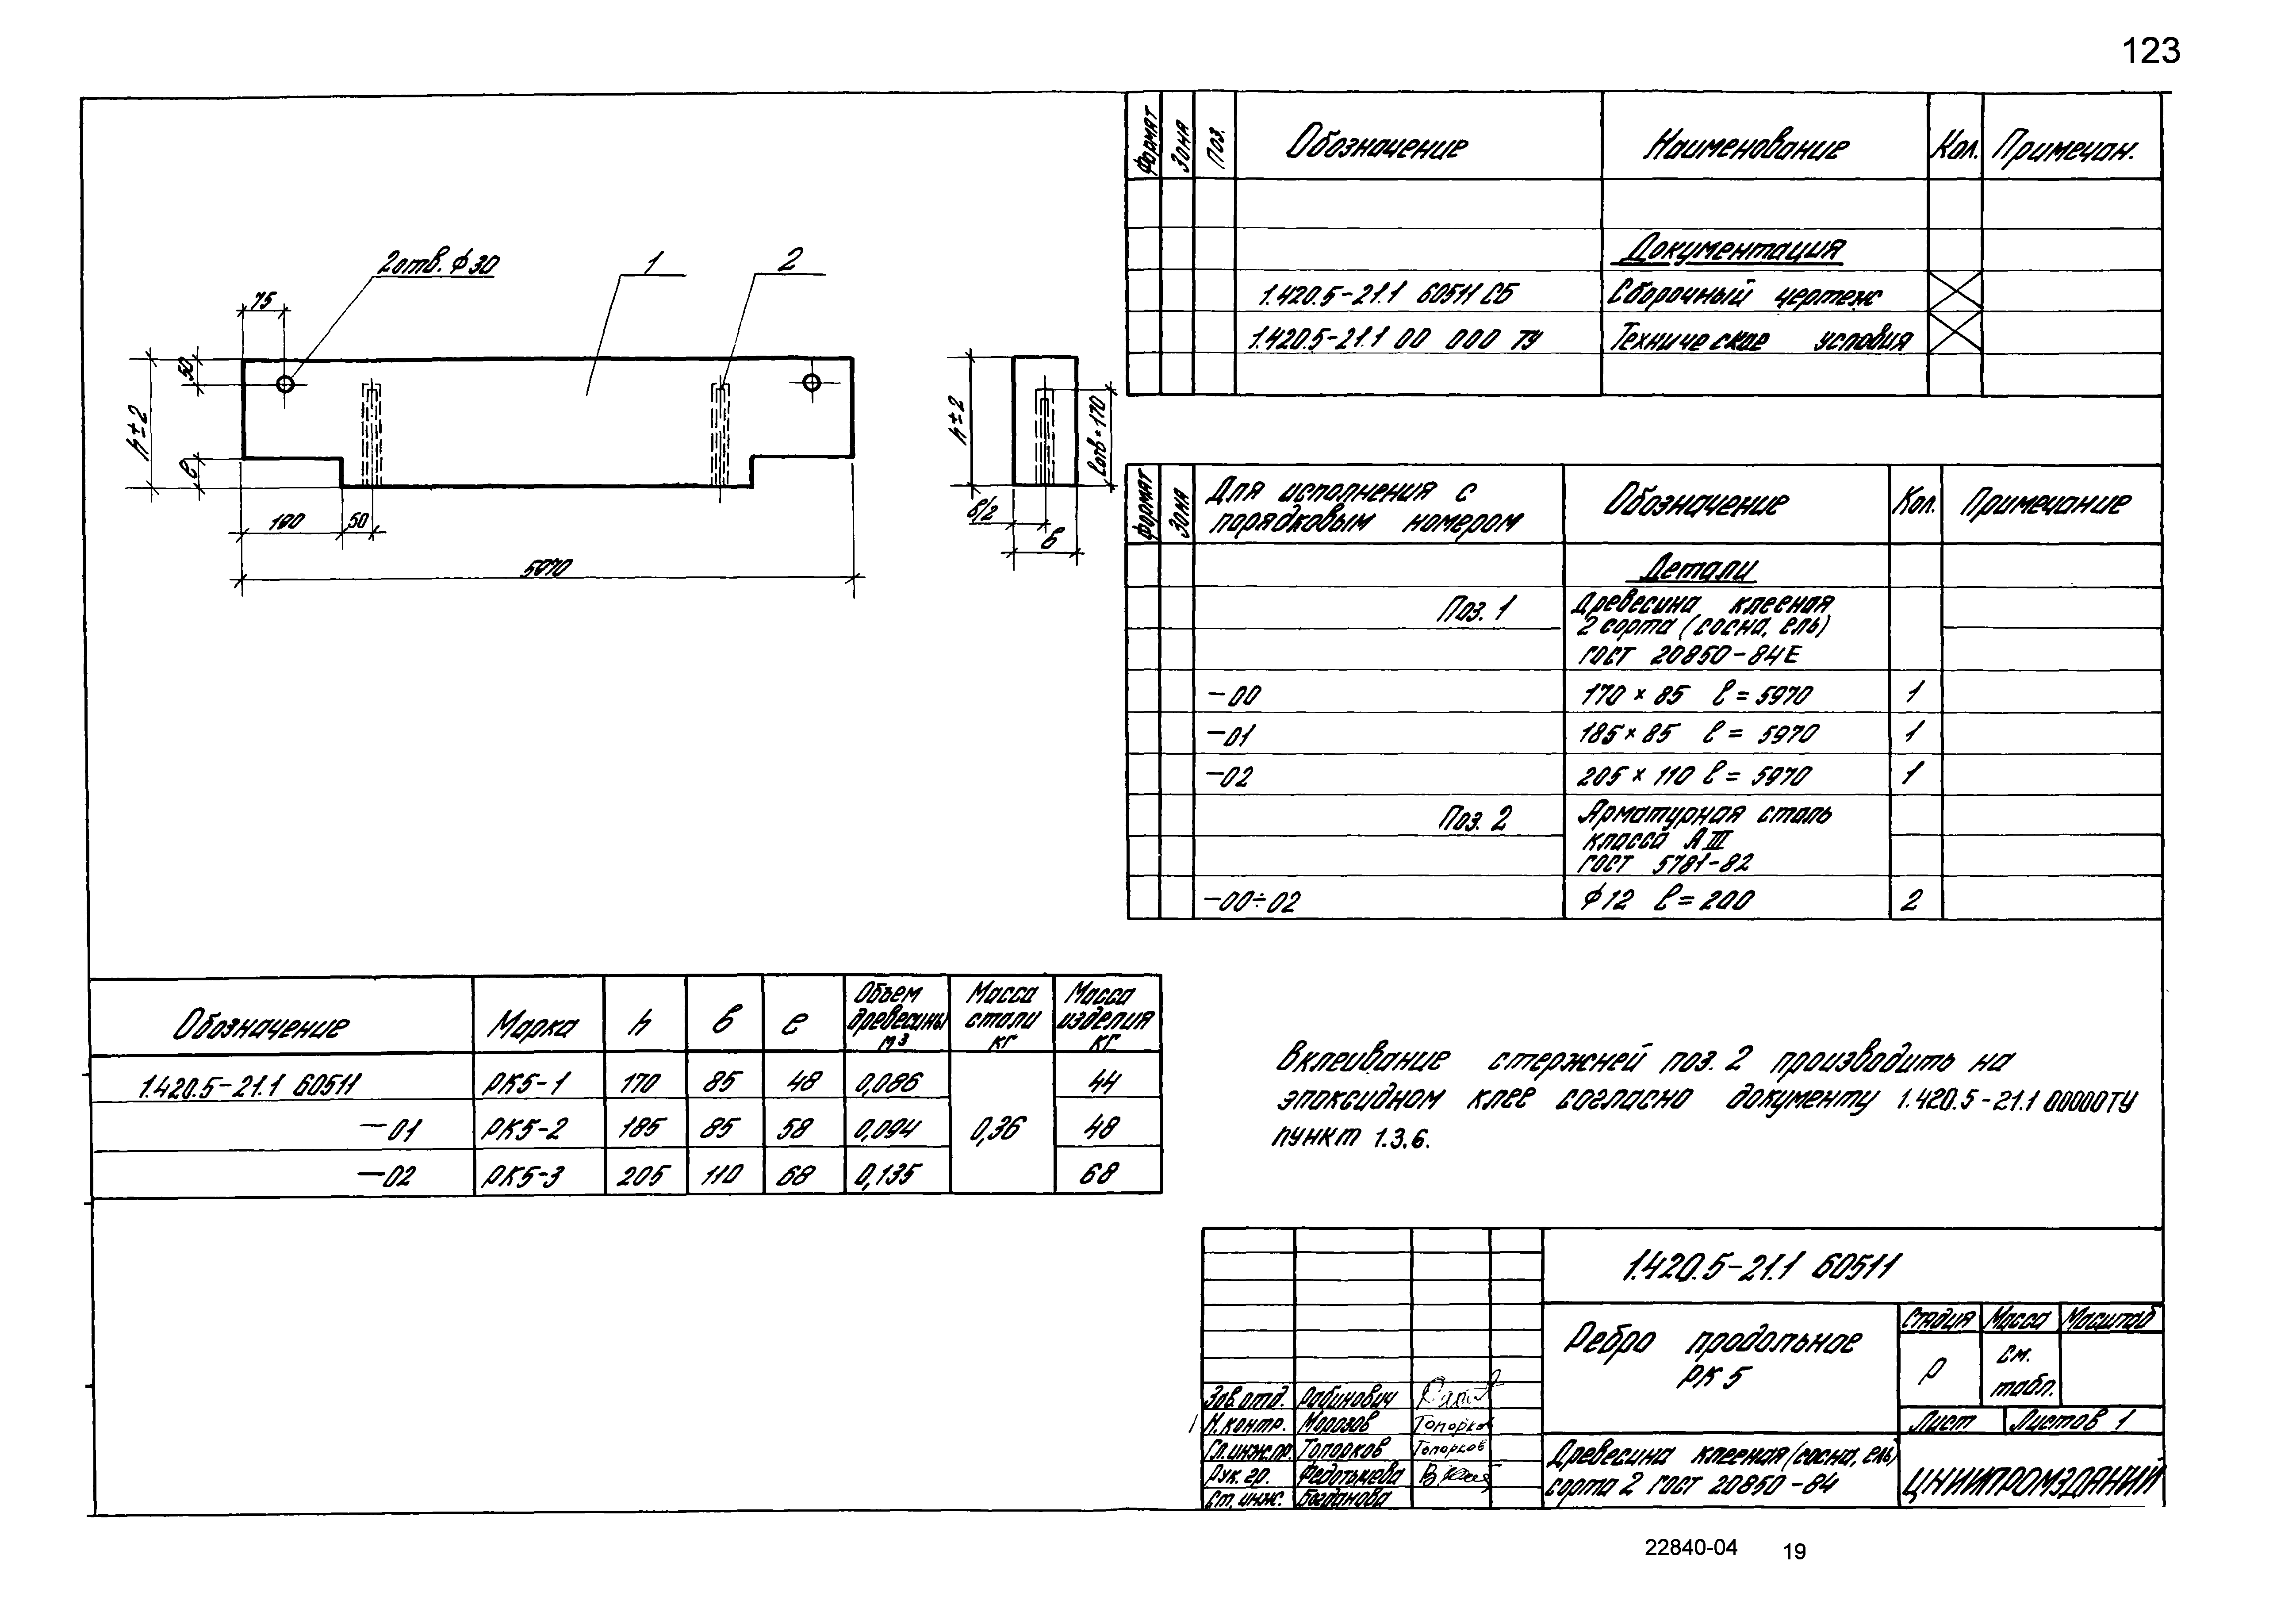 123
2отв. ф30
1
2
75
50
h±2
е
180
50
5970
h±2
ℓотв=170
в/2
в
Формат Зона Поз. Обозначение Наименование Кол. Примечан.
Документация
1.420.5-21.1 60511 СБ Сборочный чертеж
1.420.5-21.1 00 000 ТУ Технические условия
Формат Зона Для исполнения с порядковым номером Обозначение Кол. Примечание
Детали
Поз. 1 Древесина клееная
2 сорта (сосна, ель)
ГОСТ 20850-84Е
-00 170 × 85 ℓ = 5970 1
-01 185 × 85 ℓ = 5970 1
-02 205 × 110 ℓ = 5970 1
Поз. 2 Арматурная сталь
класса АIII
ГОСТ 5781-82
-00÷02 ф12 ℓ = 200 2
Обозначение Марка h в е Объем древесины м³ Масса стали кг Масса изделия кг
1.420.5-21.1 60511 РК5-1 170 85 48 0,086 44
-01 РК5-2 185 85 58 0,094 0,36 48
-02 РК5-3 205 110 68 0,135 68
Вклеивание стержней поз. 2 производить на
эпоксидном клее согласно документу 1.420.5-21.1 00000ТУ
пункт 1.3.6.
1.420.5-21.1 60511
Ребро продольное
РК 5
Стадия Масса Масштаб
Р См. табл.
Лист Листов 1
Зав. отд. Рабинович
Н. контр. Морозов Топорков
Гл. инж. пр. Топорков Топорков
Рук. гр. Федотычева
Ст. инж. Богданова
Древесина клееная (сосна, ель)
сорта 2 ГОСТ 20850-84
ЦНИИПРОМЗДАНИЙ
22840-04 19